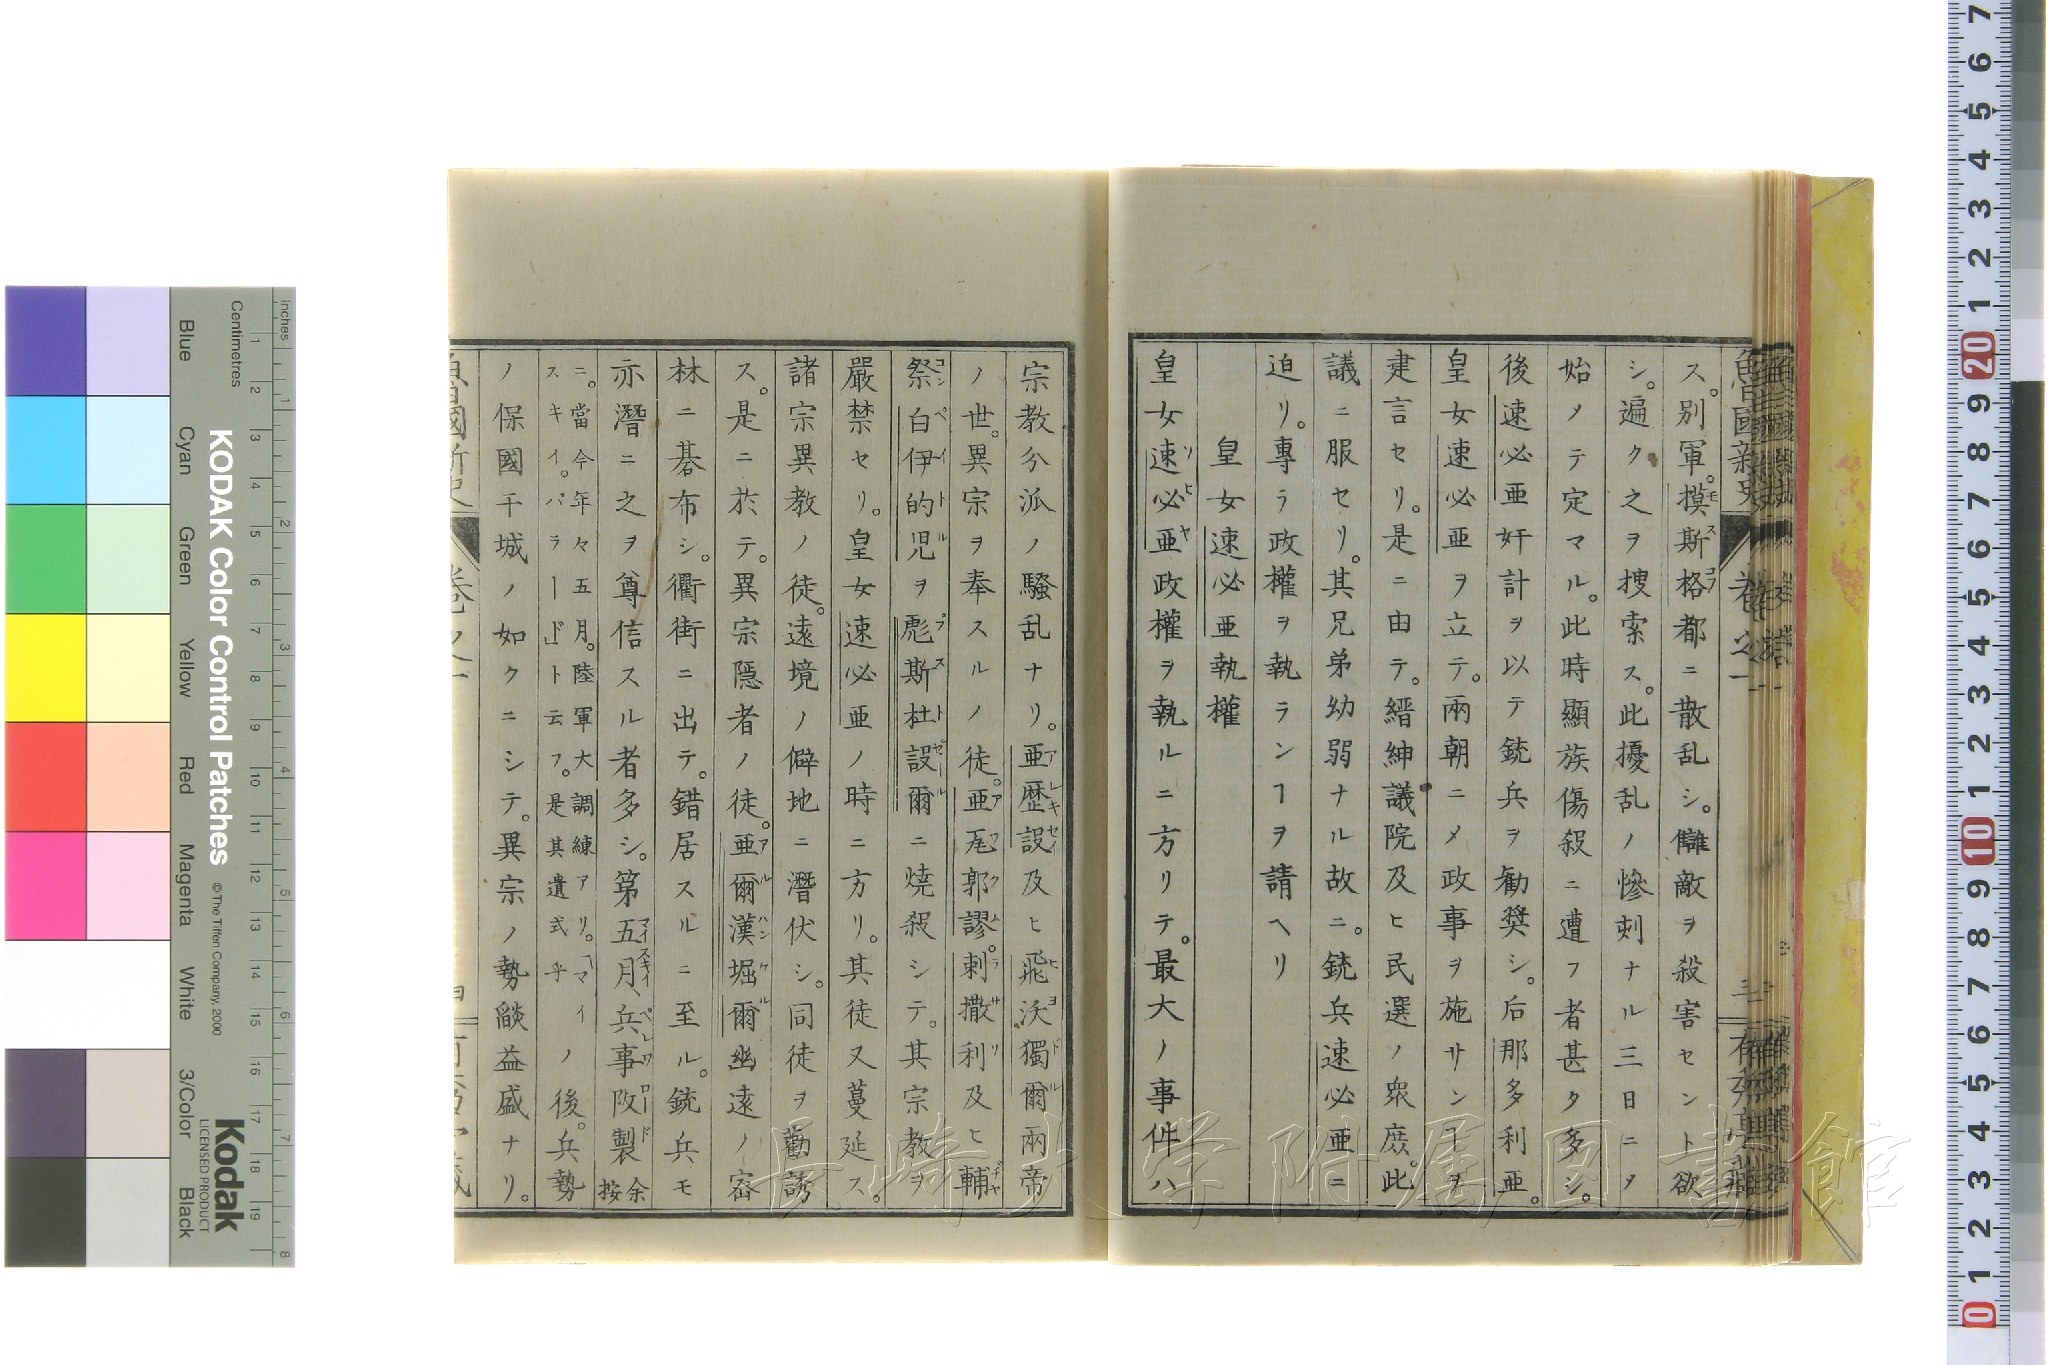 ス。別軍。摸斯格都ニ散乱シ。讎敵ヲ殺害セント欲
シ。遍ク之ヲ捜索ス。此擾乱ノ慘刺ナル三日ニメ
始ノテ定マル。此時顯族傷殺ニ遭フ者甚タ多シ。
後速必亜奸計ヲ以テ銃兵ヲ勧奨シ。后那多利亜。
皇女速必亜ヲ立テ。兩朝ニメ政事ヲ施サンヿヲ
建言セリ。是ニ由テ。縉紳議院及ヒ民選ノ眾庶。此
議ニ服セリ。其兄弟幼弱ナル故ニ。銃兵速必亜ニ
迫リ。專ラ政權ヲ執ランヿヲ請ヘリ
皇女速必亜執權
皇女速必亜政權ヲ執ルニ方リテ。最大ノ事件ハ
宗教分派ノ騷乱ナリ。亜歴設及ヒ飛沃獨爾兩帝
ノ世。異宗ヲ奉スルノ徒。亜瓦郭謬。刺撒利及ヒ輔
祭白伊的児ヲ彪斯杜設爾ニ焼殺シテ。其宗教ヲ
嚴禁セリ。皇女速必亜ノ時ニ方リ。其徒又蔓延ス。
諸宗異教ノ徒。遠境ノ僻地ニ潛伏シ。同徒ヲ勸誘
ス。是ニ於テ。異宗隱者ノ徒。亜爾漢堀爾幽遠ノ密
林ニ碁布シ。衢街ニ出テ。錯居スルニ至ル。銃兵モ
亦潛ニ之ヲ尊信スル者多シ。第五月、兵事改製余按
ニ。當今年々五月。陸軍大調練アリ。「マイ
スキイ。パラード」ト云フ。是其遺式乎ノ後。兵勢
ノ保國干城ノ如クニシテ。異宗ノ勢燄益盛ナリ。
KODAK Color Control Patches
© The Tiffen Company, 2000
Kodak
LICENSED PRODUCT
Inches
Centimetres
Blue
Cyan
Green
Yellow
Red
Magenta
White
3/Color
Black
長崎大学附属図書館